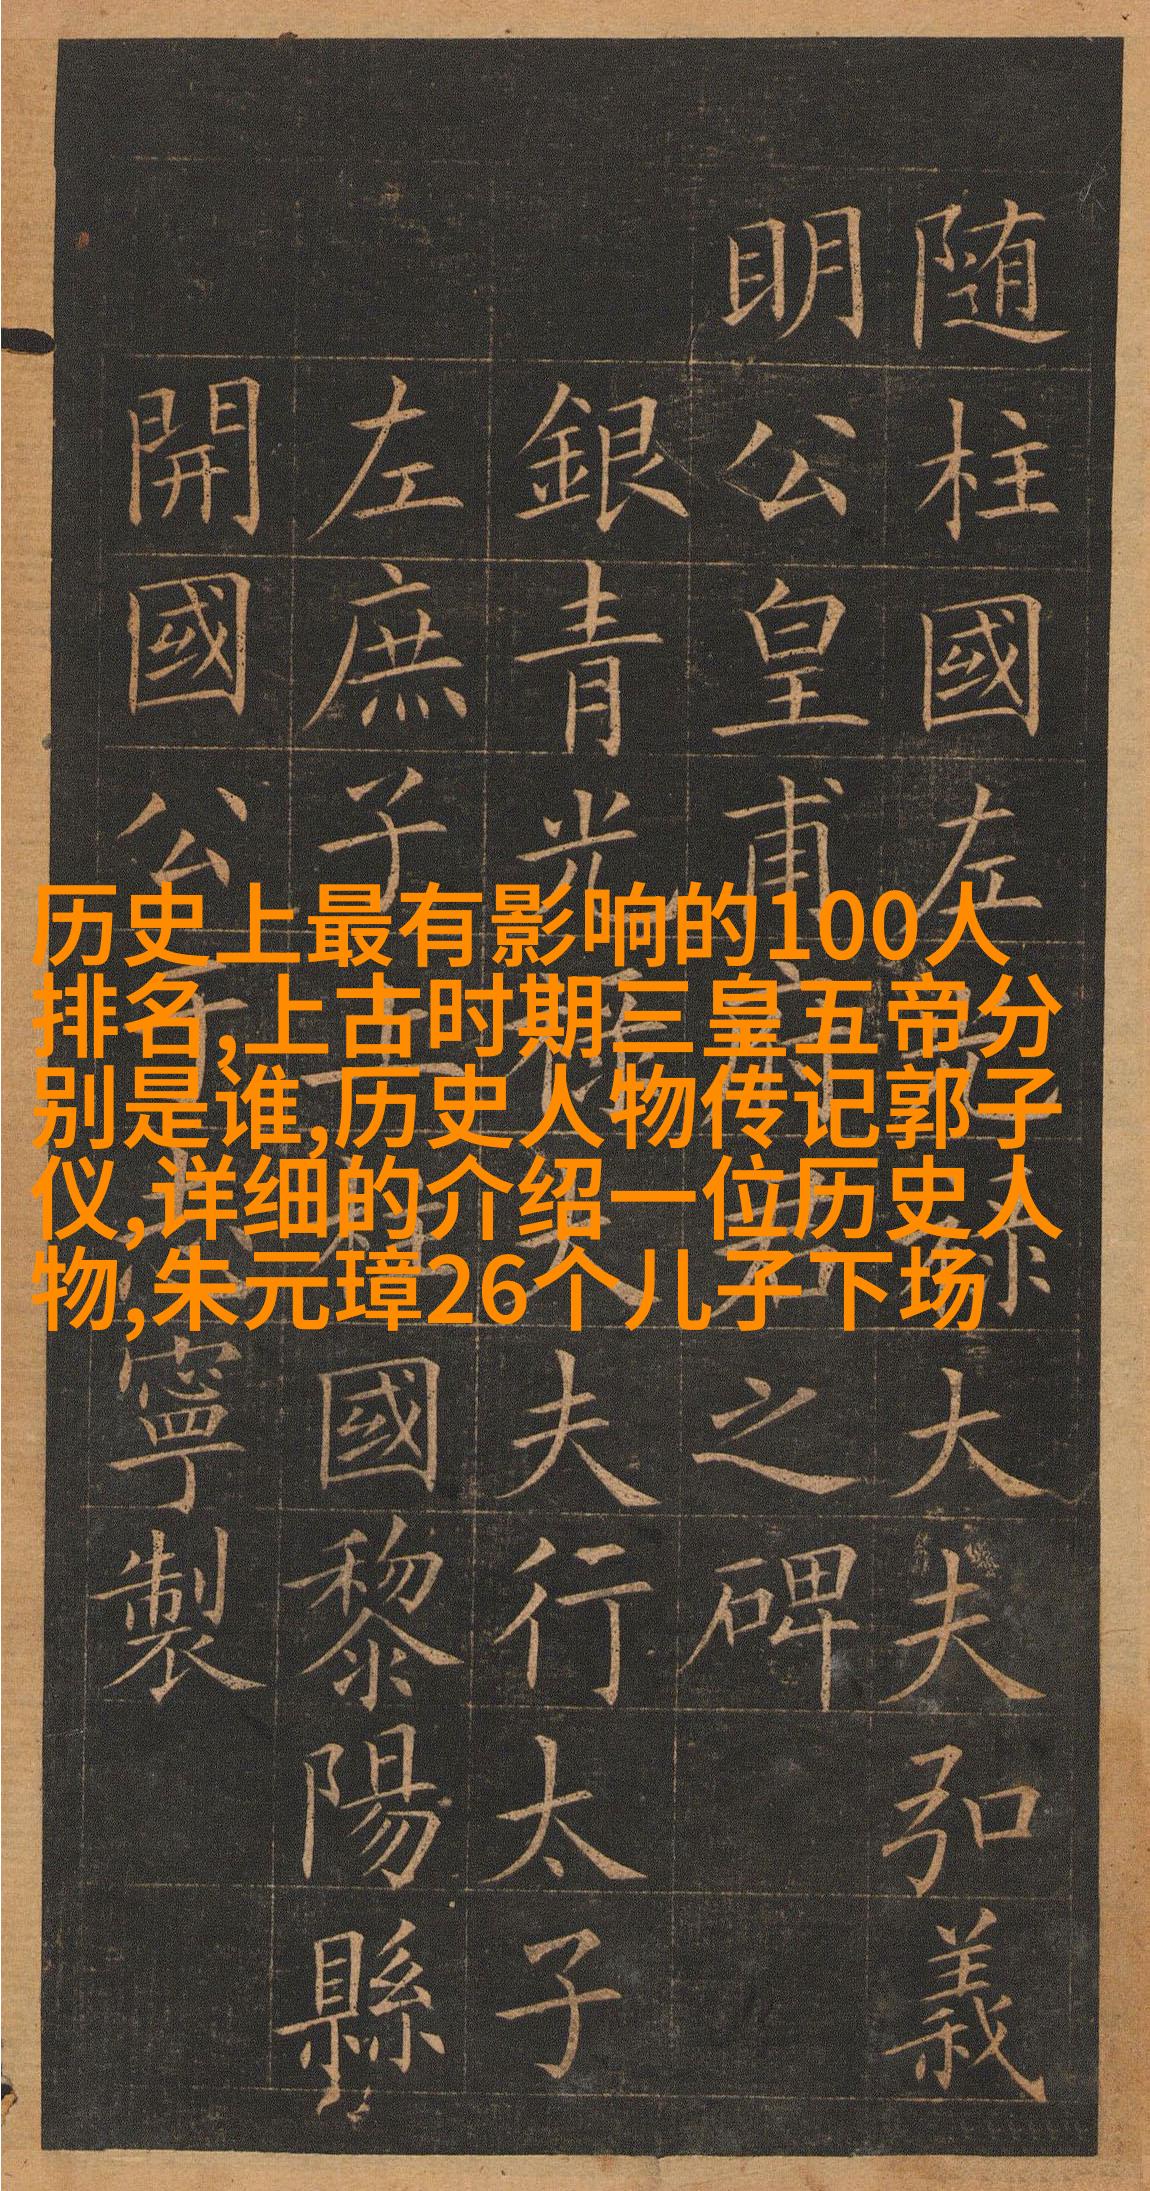 历史上最有影响的100人
排名,上古时期三皇五帝分
别是谁,历史人物传记郭子
仪,详细的介绍一位历史人
物,朱元璋26个儿子下场
随柱國左光祿大夫弘義
明公皇甫府君之碑
銀青光祿大夫行太子
左庶子上柱國黎陽縣
開國公于志寧製